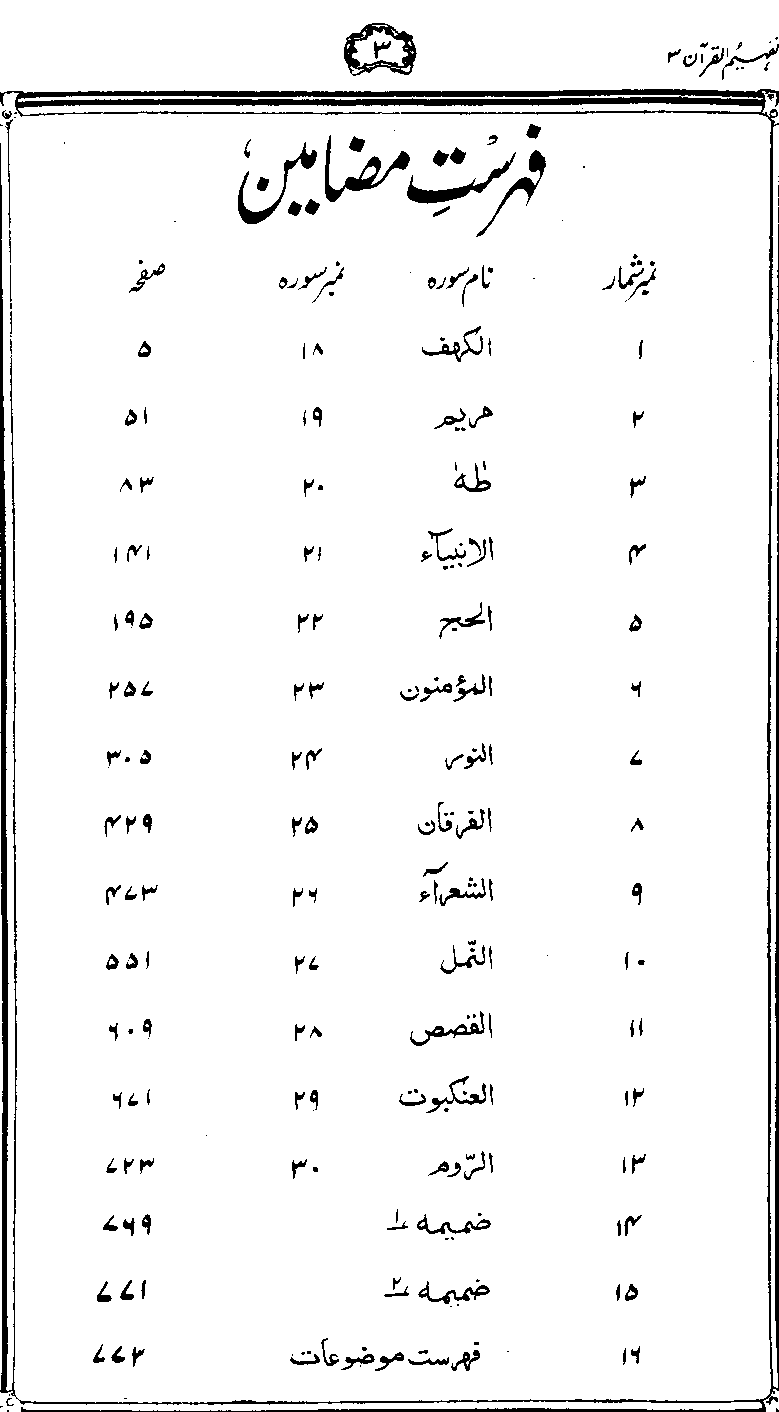 تفہیم القرآن ۳
۳
فہرستِ مضامین
نمبر شمار نام سورہ نمبر سورہ صفحہ
۱ الکهف ۱۸ ۵
۲ مریم ۱۹ ۵۱
۳ طٰهٰ ۲۰ ۸۳
۴ الانبیآء ۲۱ ۱۴۱
۵ الحج ۲۲ ۱۹۵
۶ المؤمنون ۲۳ ۲۵۷
۷ النور ۲۴ ۳۰۵
۸ الفرقان ۲۵ ۴۲۹
۹ الشعرآء ۲۶ ۴۷۳
۱۰ النّمل ۲۷ ۵۵۱
۱۱ القصص ۲۸ ۶۰۹
۱۲ العنکبوت ۲۹ ۶۷۱
۱۳ الرّوم ۳۰ ۷۲۳
۱۴ ضمیمہ ۱ ۷۶۹
۱۵ ضمیمہ ۲ ۷۷۱
۱۶ فہرست موضوعات ۷۷۳